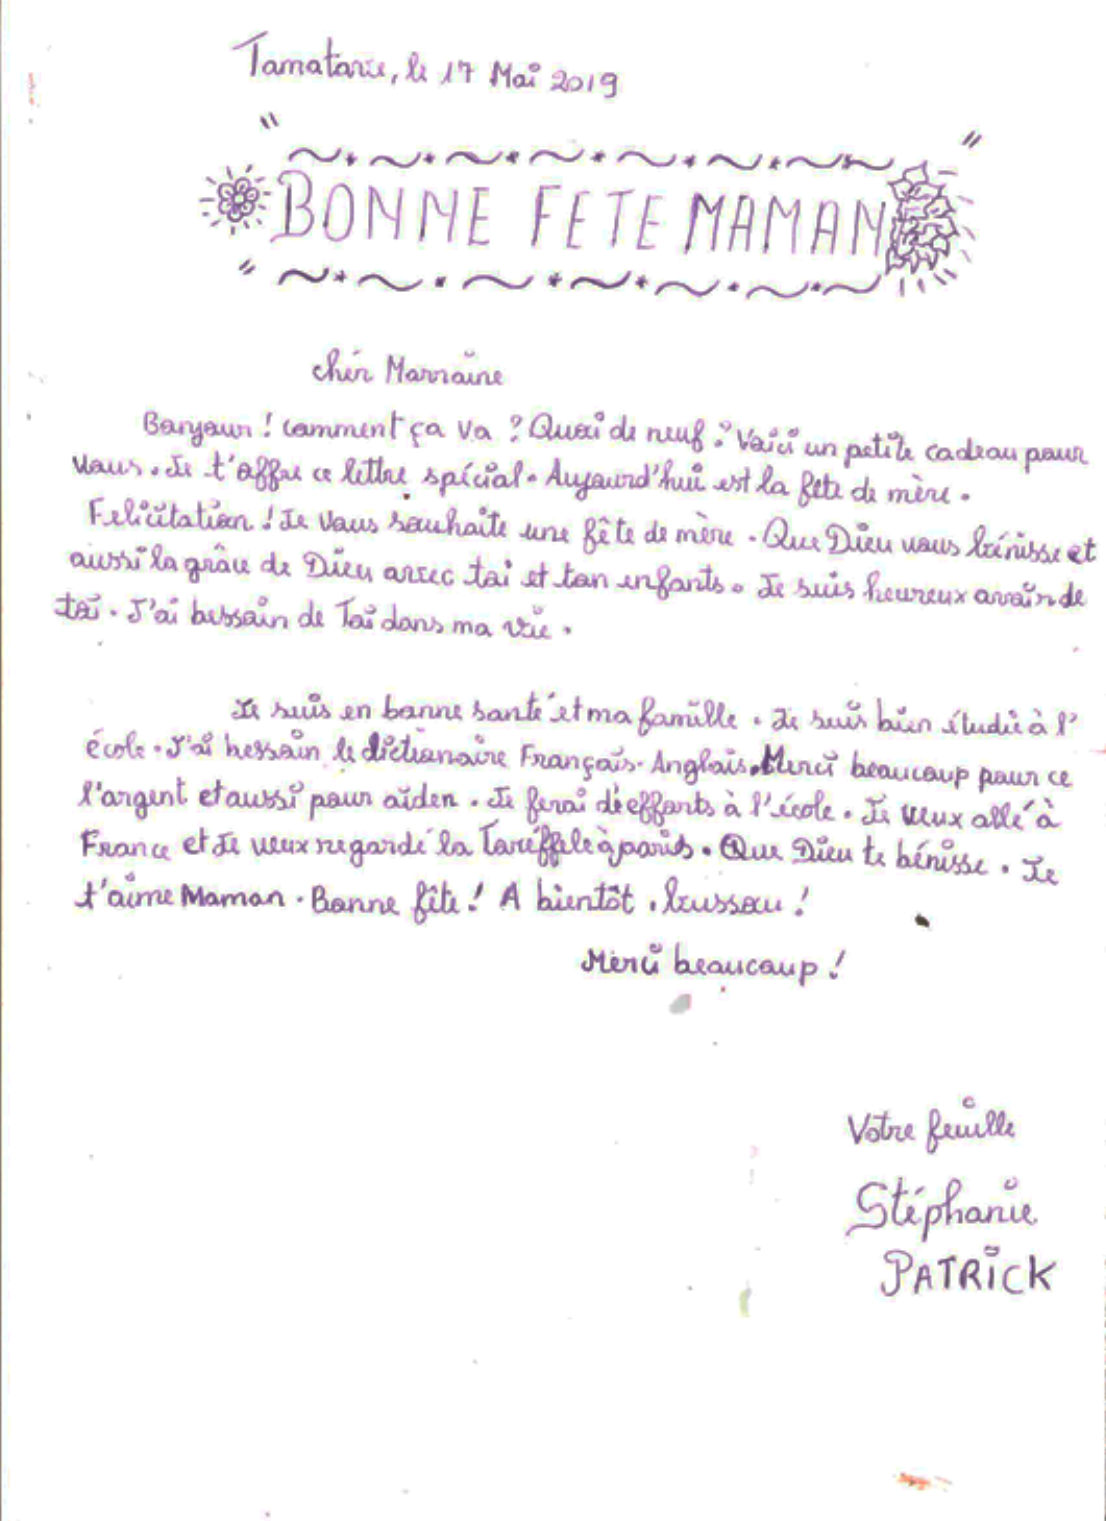 Tamatave, le 17 Mai 2019
" "
BONNE FETE MAMAN
"
chèr Marraine
Bonjour ! comment ça va ? Quoi de neuf ? Voici un petite cadeau pour
vous. Je t'offre ce lettre spécial. Aujourd'hui est la fête de mère.
Felicitation ! Je vous souhaite une fête de mère. Que Dieu vous bénisse et
aussi la grâce de Dieu avec toi et ton enfants. Je suis heureux avoir de
toi. J'ai bessoin de Toi dans ma vie.
Je suis en bonne santé et ma famille. Je suis bien étudié à l'
école. J'ai bessoin le dictionaire Français-Anglais. Merci beaucoup pour ce
l'argent et aussi pour aider. Je ferai de efforts à l'école. Je veux allé à
France et Je veux regardé la Toreiffele à paris. Que Dieu te bénisse. Je
t'aime Maman. Bonne fête ! A bientôt, !
Merci beaucoup !
Votre feuille
Stéphanie
PATRICK